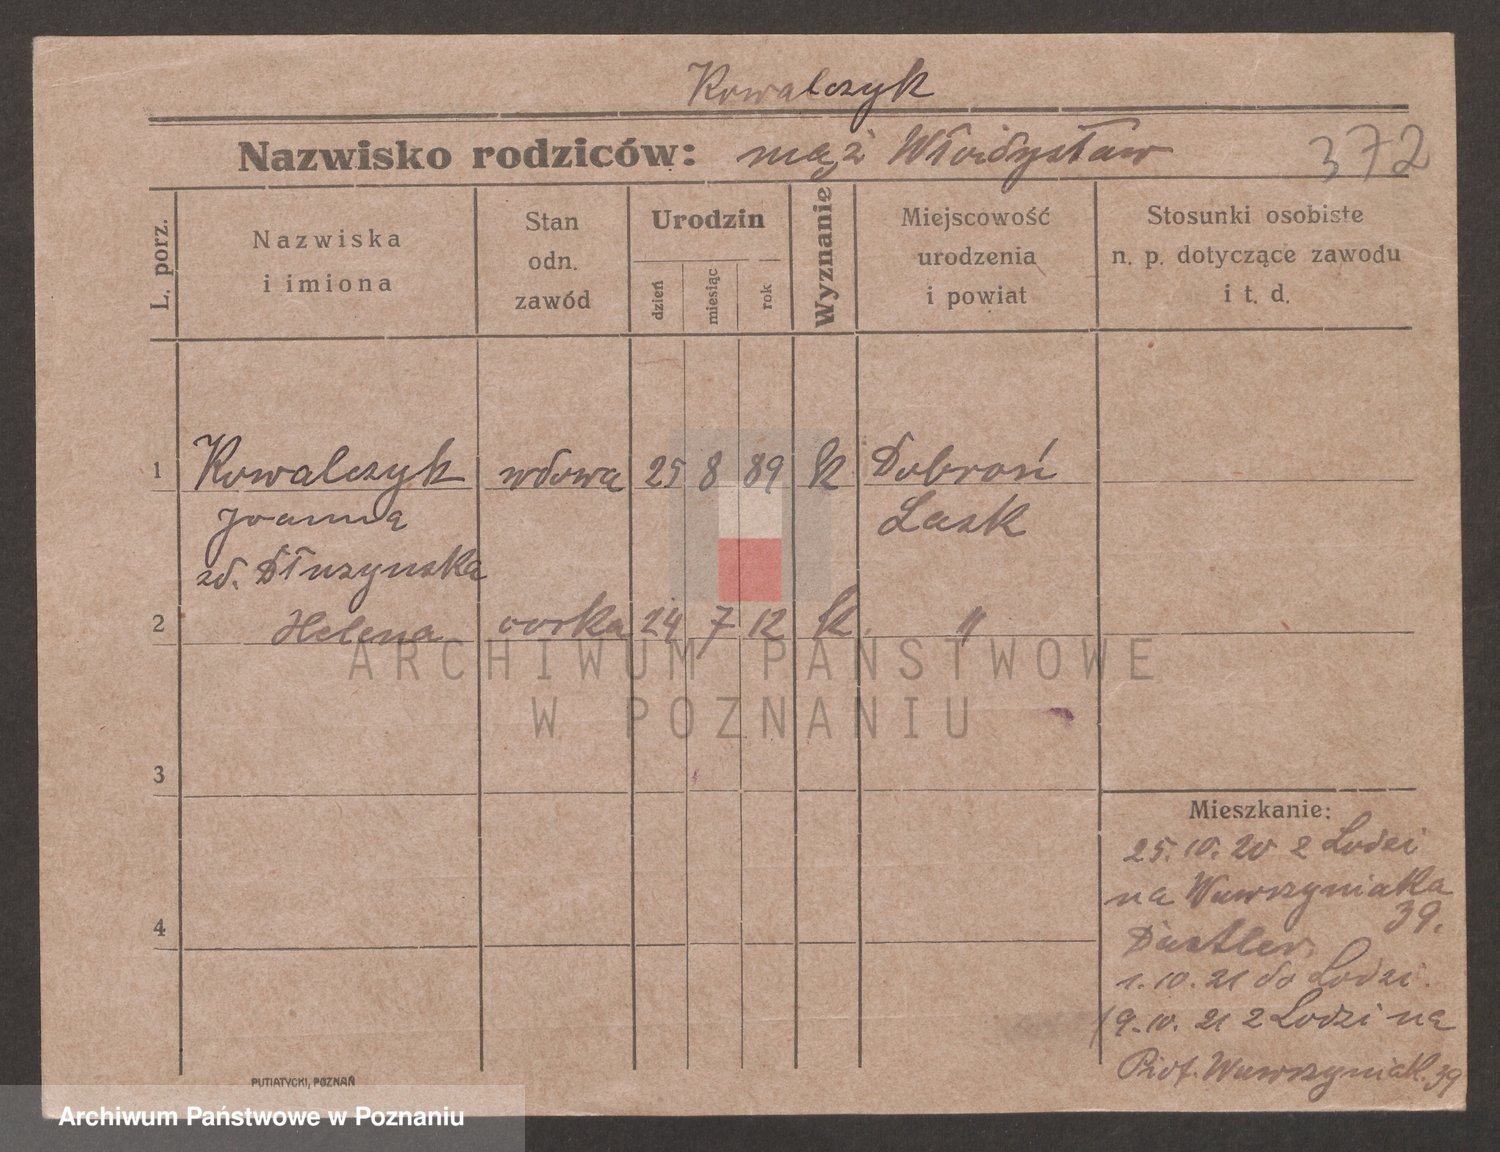 Kowalczyk
Nazwisko rodziców: mąż Władysław 372
L. porz.
Nazwiska
i imiona
Stan
odn.
zawód
Urodzin
dzień
miesiąc
rok
Wyznanie
Miejscowość
urodzenia
i powiat
Stosunki osobiste
n. p. dotyczące zawodu
i t. d.
1 Kowalczyk wdowa 25 8 89 k Dobroń
Joanna Lask
zd. Dłuzynska
2 Helena corka 24 7 12 k "
ARCHIWUM PAŃSTWOWE
W POZNANIU
3
4
Mieszkanie:
25. 10. 20 z Lodzi
na Wawrzyniaka
39.
1. 10. 21 do Lodzi.
19. 10. 21 z Lodzi na
Wawrzyniak. 39
PUTIATYCKI, POZNAŃ
Archiwum Państwowe w Poznaniu